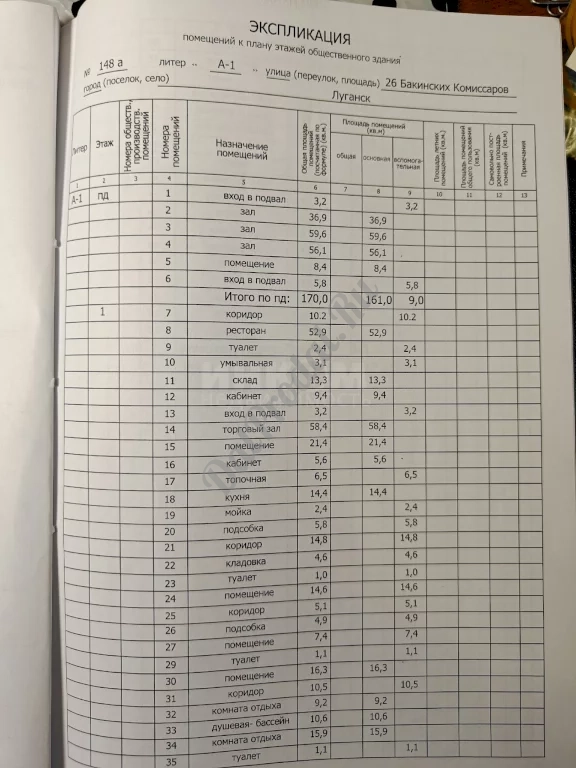 ЭКСПЛИКАЦИЯ
помещений к плану этажей общественного здания
№ 148 а литер „ А-1 „ улица (переулок, площадь) 26 Бакинских Комиссаров
город (поселок, село) Луганск
Литер Этаж Номера обществ., производств. помещений Номера помещений Назначение помещений Общая площадь помещений (посчитанная по формуле) (кв.м.) Площадь помещений (кв.м) общая основная вспомога-тельная Площадь летних помещений (кв.м.) Площадь помещений общего пользования (кв.м) Самовольно пост-роенная площадь помещений (кв.м) Примечания
1 2 3 4 5 6 7 8 9 10 11 12 13
А-1 пд 1 вход в подвал 3,2 3,2
2 зал 36,9 36,9
3 зал 59,6 59,6
4 зал 56,1 56,1
5 помещение 8,4 8,4
6 вход в подвал 5,8 5,8
Итого по пд: 170,0 161,0 9,0
1 7 коридор 10.2 10.2
8 ресторан 52,9 52,9
9 туалет 2,4 2,4
10 умывальная 3,1 3,1
11 склад 13,3 13,3
12 кабинет 9,4 9,4
13 вход в подвал 3,2 3,2
14 торговый зал 58,4 58,4
15 помещение 21,4 21,4
16 кабинет 5,6 5,6
17 топочная 6,5 6,5
18 кухня 14,4 14,4
19 мойка 2,4 2,4
20 подсобка 5,8 5,8
21 коридор 14,8 14,8
22 кладовка 4,6 4,6
23 туалет 1,0 1,0
24 помещение 14,6 14,6
25 коридор 5,1 5,1
26 подсобка 4,9 4,9
27 помещение 7,4 7,4
29 туалет 1,1 1,1
30 помещение 16,3 16,3
31 коридор 10,5 10,5
32 комната отдыха 9,2 9,2
33 душевая- бассейн 10,6 10,6
34 комната отдыха 15,9 15,9
35 туалет 1,1 1,1